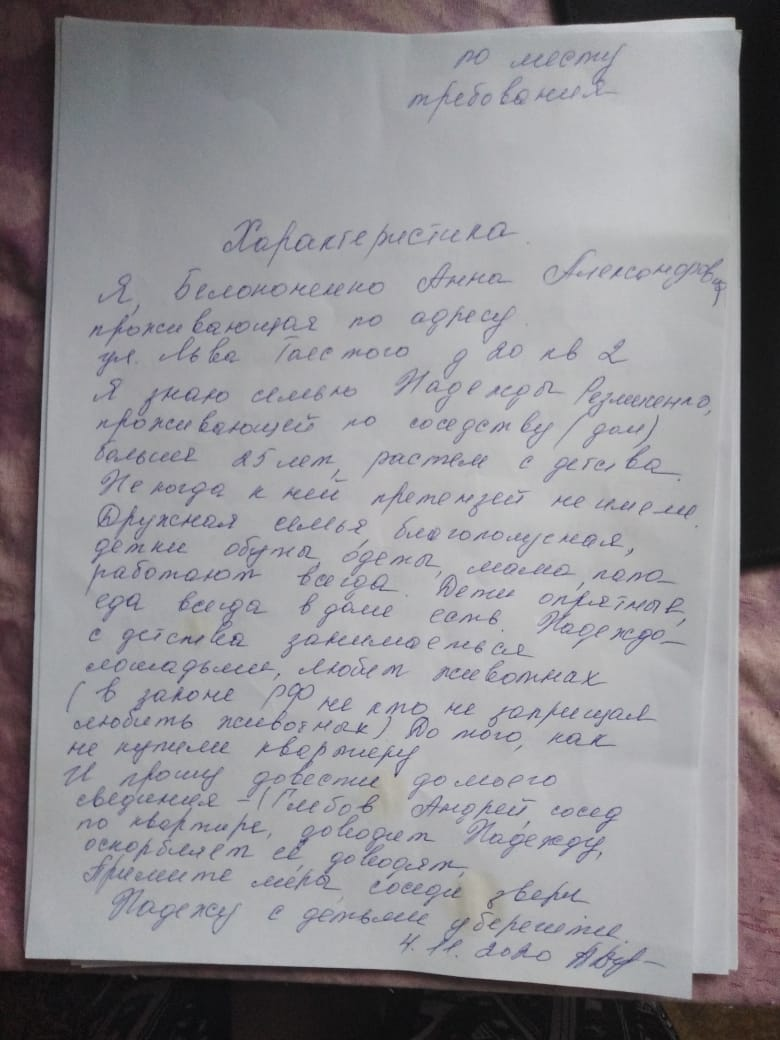 по месту
требования
Характеристика
Я, Белокопенно Анна Александровна
проживающая по адресу
ул. Льва Толстого д 20 кв 2
Я знаю семью Надежды
проживающей по соседству (дом)
больше 25 лет, растем с детства.
Не когда к ней претензей не имели.
Дружная семья, благополусная,
детки обуты одеты, мама, папа
работают всегда. Дети опрятные,
еда всегда в доме есть. Надежда
с детства занимаеться
лошадьми, любит животнах
(в законе РФ не кто не заприщал
любить животных) До того, как
не купили квартиру
И прошу довести до моего
свединия - (Глебов Андрей, сосед
по квартире, доводит Надежду,
оскорбляет её, доводят,
Примите мера, соседи звери
Надежу с детьми уберегите.
4. 11. 2020